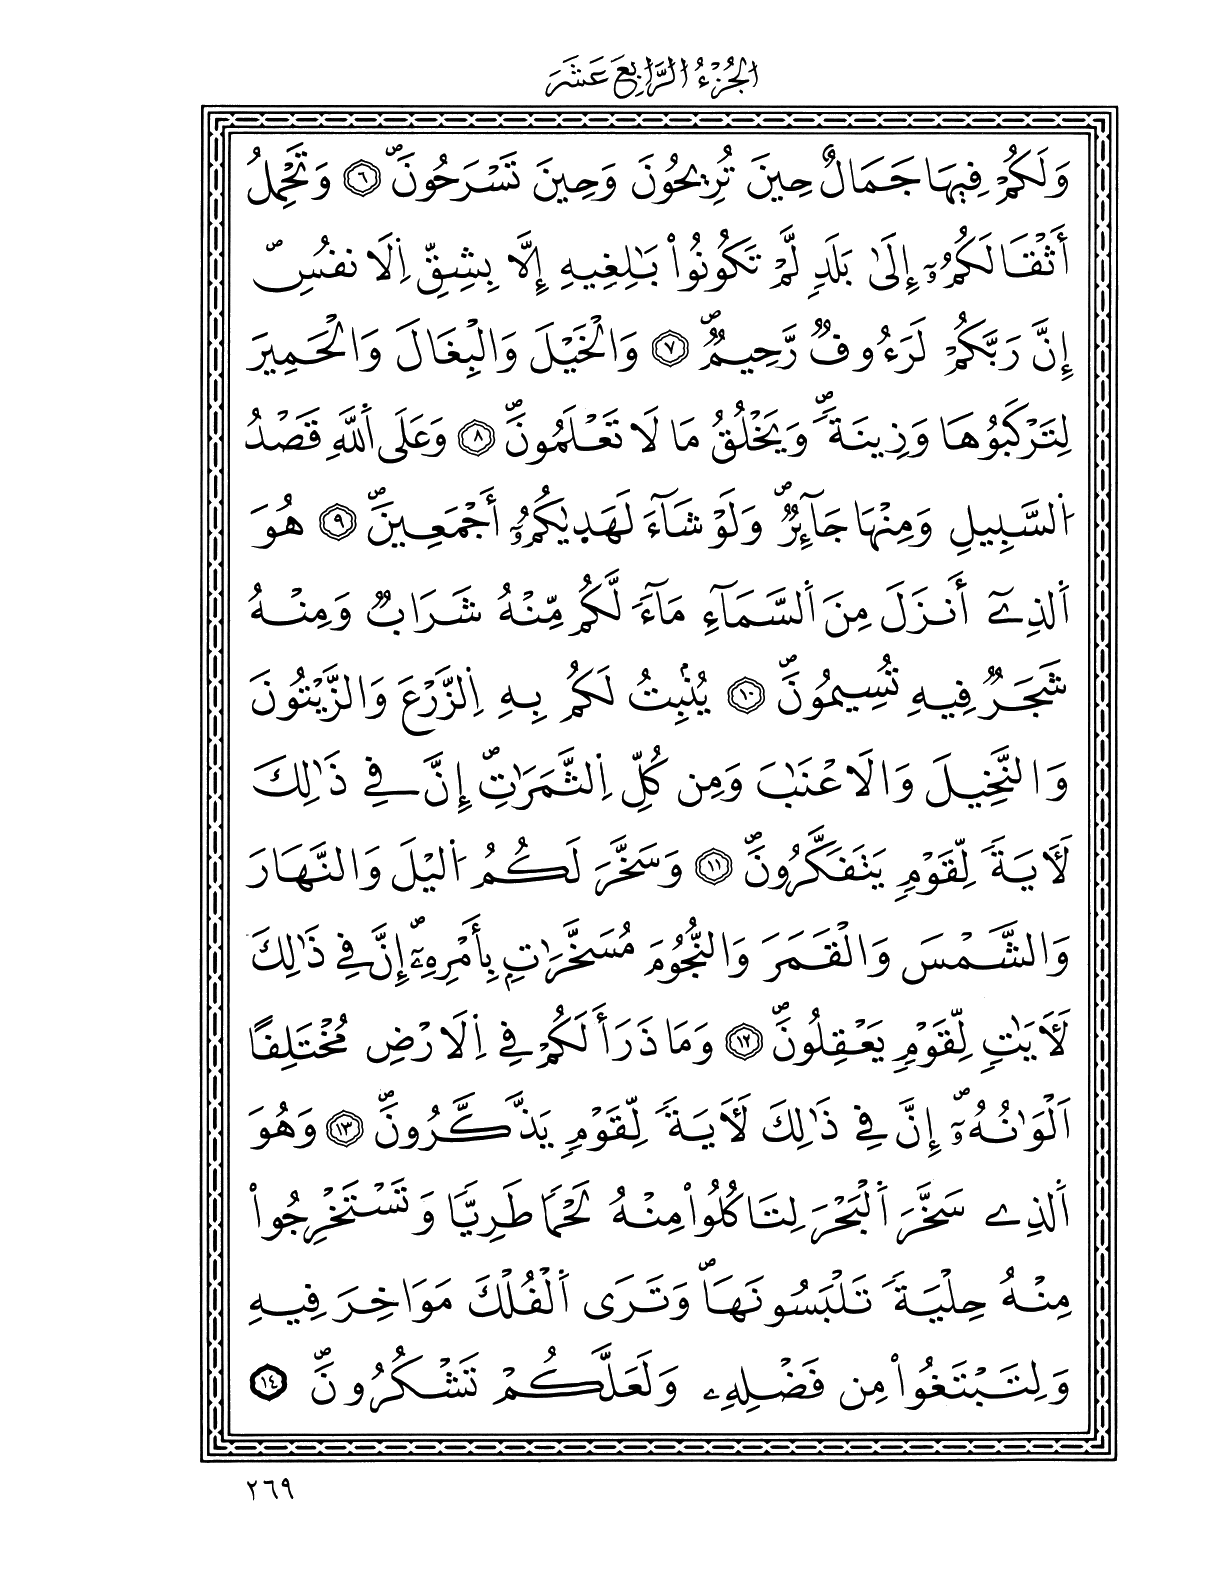 الجُزْءُ الرَّابِعَ عَشَرَ
وَلَكُمْ فِيهَا جَمَالٌ حِينَ تُرِيحُونَ وَحِينَ تَسْرَحُونَۖ ٦ وَتَحْمِلُ
أَثْقَالَكُمُۥٓ إِلَىٰ بَلَدٖ لَّمْ تَكُونُواْ بَٰلِغِيهِ إِلَّا بِشِقِّ اِ۬لَانفُسِۖ
إِنَّ رَبَّكُمْ لَرَءُوفٞ رَّحِيمٞۖ ٧ وَالْخَيْلَ وَالْبِغَالَ وَالْحَمِيرَ
لِتَرْكَبُوهَا وَزِينَةٗۖ وَيَخْلُقُ مَا لَا تَعْلَمُونَۖ ٨ وَعَلَى اَ۬للَّهِ قَصْدُ
اُ۬لسَّبِيلِ وَمِنْهَا جَآئِرٞۖ وَلَوْ شَآءَ لَهَدٜيٰكُمُۥٓ أَجْمَعِينَۖ ٩ هُوَ
اَ۬لذِےٓ أَنزَلَ مِنَ اَ۬لسَّمَآءِ مَآءٗ لَّكُم مِّنْهُ شَرَابٞ وَمِنْهُ
شَجَرٞ فِيهِ تُسِيمُونَۖ ١٠ يُنۢبِتُ لَكُم بِهِ اِ۬لزَّرْعَ وَالزَّيْتُونَ
وَالنَّخِيلَ وَالَاعْنَٰبَ وَمِن كُلِّ اِ۬لثَّمَرَٰتِۖ إِنَّ فِے ذَٰلِكَ
لَأٓيَةٗ لِّقَوْمٖ يَتَفَكَّرُونَۖ ١١ وَسَخَّرَ لَكُمُ اُ۬ليْلَ وَالنَّهَارَ
وَالشَّمْسَ وَالْقَمَرَ وَالنُّجُومَ مُسَخَّرَٰتِۢ بِأَمْرِهِۦٓۖ إِنَّ فِے ذَٰلِكَ
لَأٓيَٰتٖ لِّقَوْمٖ يَعْقِلُونَۖ ١٢ وَمَا ذَرَأَ لَكُمْ فِے اِ۬لَارْضِ مُخْتَلِفًا
اَلْوَٰنُهُۥٓۖ إِنَّ فِے ذَٰلِكَ لَأٓيَةٗ لِّقَوْمٖ يَذَّكَّرُونَۖ ١٣ وَهُوَ
اَ۬لذِے سَخَّرَ اَ۬لْبَحْرَ لِتَاكُلُواْ مِنْهُ لَحْمٗا طَرِيّٗا وَتَسْتَخْرِجُواْ
مِنْهُ حِلْيَةٗ تَلْبَسُونَهَاۖ وَتَرَى اَ۬لْفُلْكَ مَوَاخِرَ فِيهِ
وَلِتَبْتَغُواْ مِن فَضْلِهِۦ وَلَعَلَّكُمْ تَشْكُرُونَۖ ١٤
٢٦٩